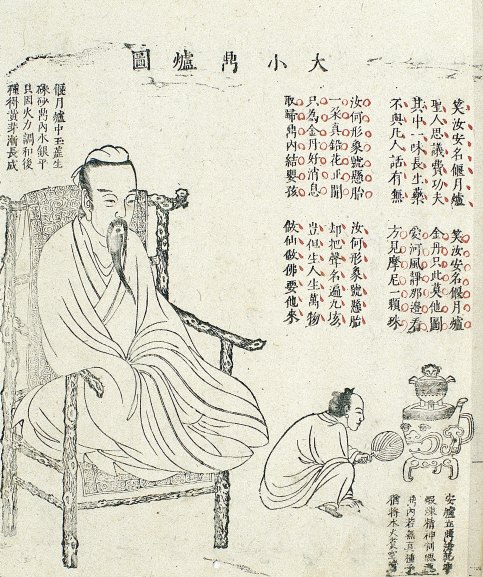 大小鼎爐圖
笑汝安名偃月爐
聖人思議費功夫
其中一味長生藥
不與凡人話有無
汝何形象號懸胎
一朶真鉛花正開
只為金丹好消息
取歸鼎內結嬰孩
笑汝安名偃月爐
金丹只此莫他圖
愛河風靜那邊看
方見摩尼一顆珠
汝何形象號懸胎
却把聲名遍九垓
豈但生人生萬物
做仙做佛要他來
偃月爐中玉蕊生
硃砂鼎內水銀平
只因火力調和後
種得黃芽漸長成
安爐立鼎法乾
煉精神制魄
鼎內若無真種子
猶將水火煮空